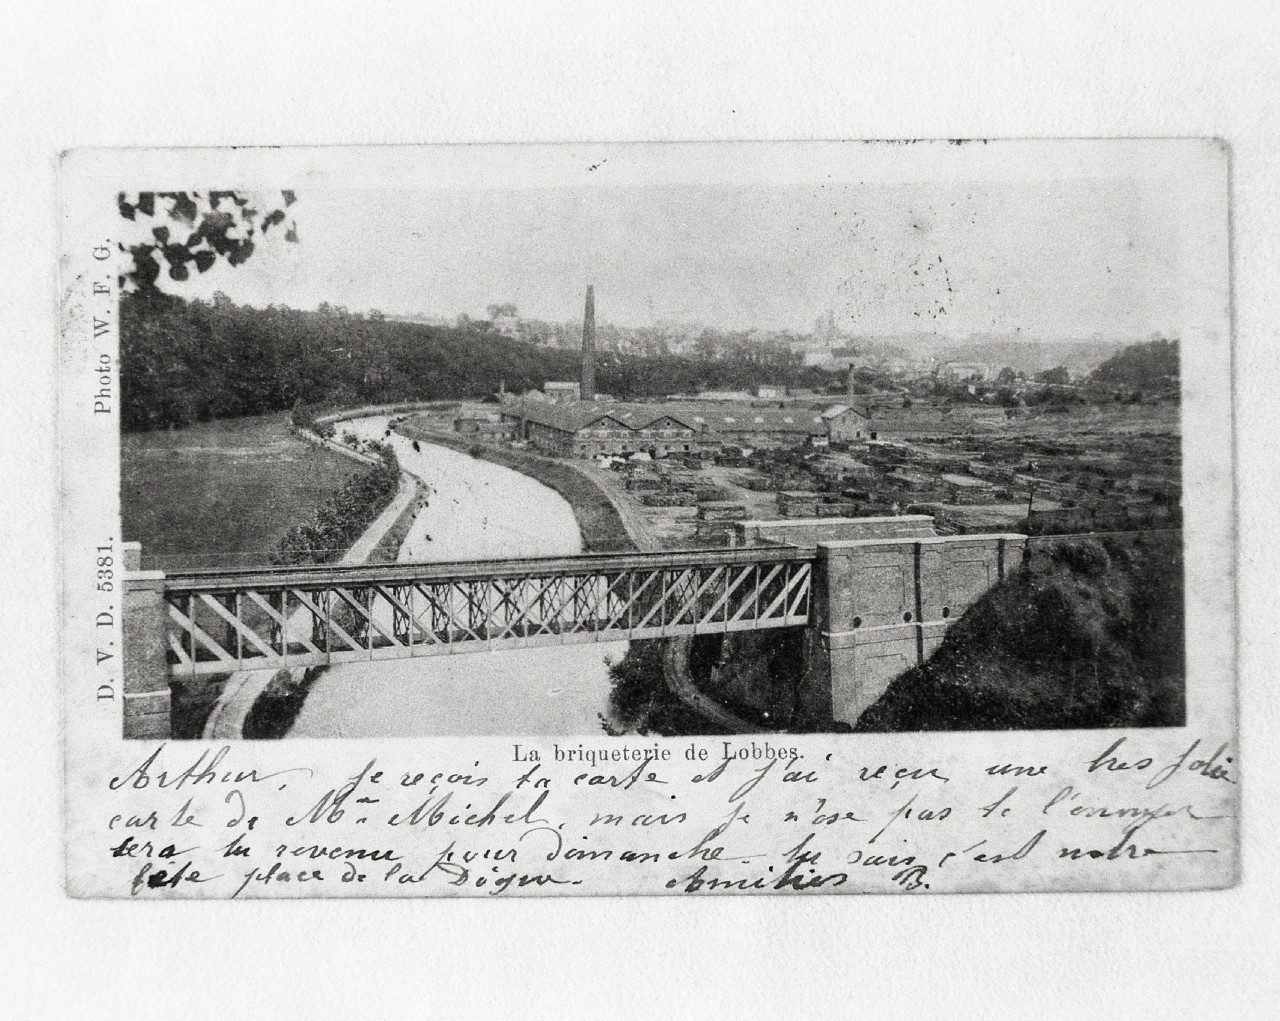 Photo W. F. G.
D. V. D. 5381.
La briqueterie de Lobbes.
Arthur, je reçois ta carte et j'ai reçu une tres jolie
carte de Mme Michel, mais je n'ose pas te l'envoyer
sera tu revenu pour dimanche tu sais c'est notre
fête place de la Digue. Amitiés B.